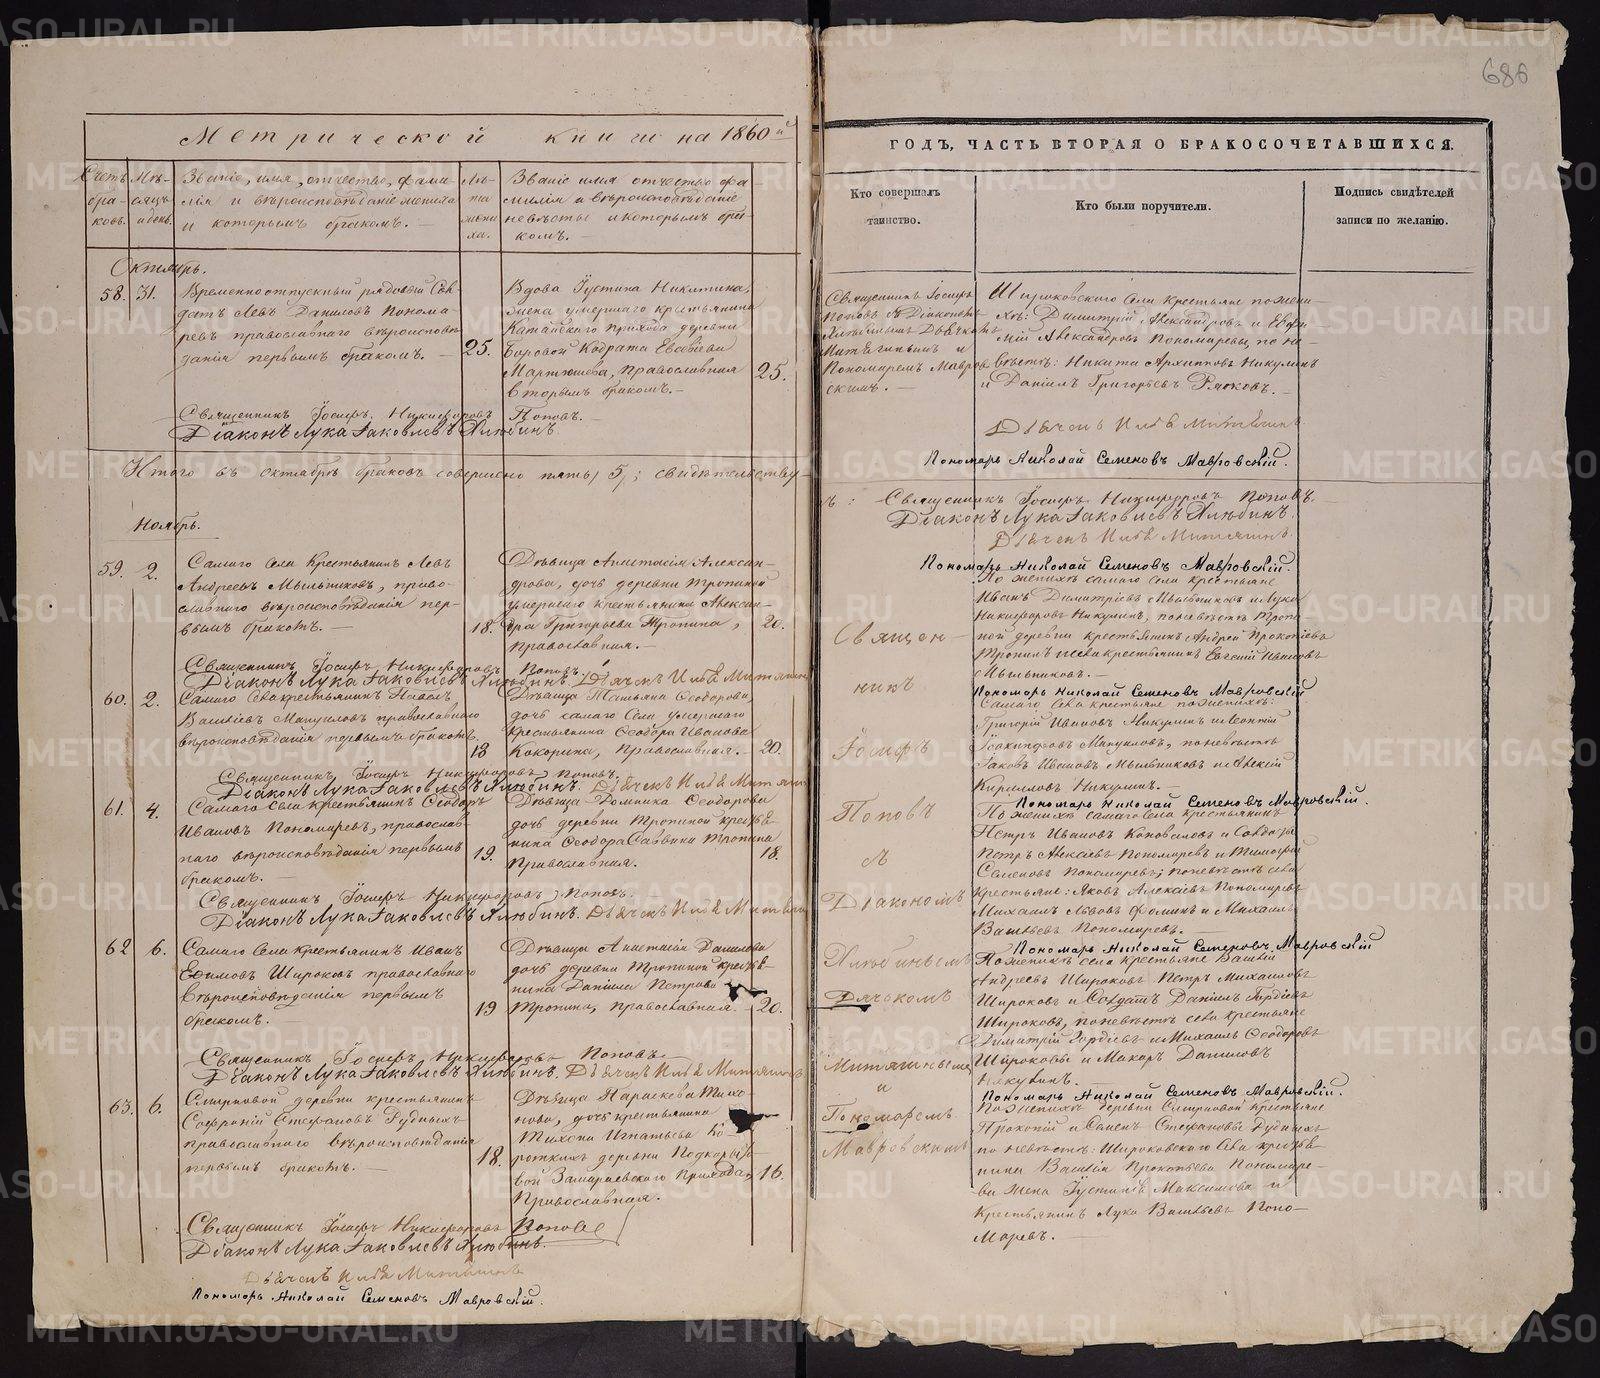 686
Метрической книги на 1860й
ГОДЪ, ЧАСТЬ ВТОРАЯ О БРАКОСОЧЕТАВШИХСЯ.
Счетъ браковъ.
Мѣсяцъ и день.
Званіе, имя, отчество, фамилія и вѣроисповѣданіе жениха и которымъ бракомъ.
Лѣта жениха.
Званіе имя отчество фамилія и вѣроисповѣданіе невѣсты и которымъ бракомъ.
Кто совершалъ
таинство.
Кто были поручители.
Подпись свидѣтелей
записи по желанію.
Октябрь.
58. 31.
Временноотпускный рядовой Сол-
датъ Левъ Даниловъ Понома-
ревъ православнаго вѣроисповѣ-
данія первымъ бракомъ. —
25.
Вдова Іустина Никитина,
жена умершаго крестьянина
Катайскаго прихода деревни
Боровой Кодрата Евсевіева
Мартюшева, православная
вторымъ бракомъ. —
25.
Священникъ Іосифъ Никифоровъ Поповъ. —
Діаконъ Лука Іаковлевъ Хлюбинъ.
Священникъ Іосифъ
Поповъ съ Діакономъ
Пономаремъ Мавров-
скимъ. —
Широковскаго Села крестьяне по жени-
хѣ: Димитрій Александровъ и Евфи-
мій Александровъ Пономаревы, по не-
вѣстѣ: Никита Архиповъ Никулинъ
и Даніилъ Григорьевъ
Дьячекъ Илья Митягинъ
Пономарь Николай Семеновъ Мавровскій.
Итого въ октябрѣ браковъ совершено пять, 5,; свидѣтельствую-
тъ: Священникъ Іосифъ Никифоровъ Поповъ.
Діаконъ Лука Іаковлевъ Хлюбинъ.
Дьячекъ Илья Митягинъ
Пономарь Николай Семеновъ Мавровскій.
Ноябрь.
59. 2.
Самаго Села Крестьянинъ Левъ
Андреевъ Мыльниковъ, право-
славнаго вѣроисповѣданія пер-
вымъ бракомъ. —
18.
Дѣвица Анастасія Алексан-
дрова, дочь деревни Тропиной
умершаго крестьянина Алексан-
дра Григорьева Тропина,
православная. —
20.
Священникъ Іосифъ Никифоровъ Поповъ.
Діаконъ Лука Іаковлевъ Хлюбинъ. Дьячекъ Илья Митягинъ
По женихѣ самаго села крестьяне
Иванъ Димитріевъ Мыльниковъ и Лука
Никифоровъ Никулинъ, по невѣстѣ Тропи-
ной деревни крестьянинъ Андрей Прокопіевъ
Тропинъ и села крестьянинъ Евгеній Ивановъ
Мыльниковъ. —
Пономарь Николай Семеновъ Мавровскій
60. 2.
Самаго Села крестьянинъ Павелъ
Васильевъ Мануиловъ православнаго
вѣроисповѣданія первымъ бракомъ.
18
Дѣвица Татьяна Ѳеодорова,
дочь самаго Села умершаго
Крестьянина Ѳеодора Иванова
Кокорина, православная. —
20.
Священникъ Іосифъ Никифоровъ Поповъ.
Діаконъ Лука Іаковлевъ Хлюбинъ. Дьячекъ Илья Митягинъ
Самаго Села крестьяне по женихѣ:
Григорій Ивановъ Никулинъ и Леонтій
Мануиловъ, по невѣстѣ
Іаковъ Ивановъ Мыльниковъ и Алексій
Кириловъ Никулинъ. —
Пономарь Николай Семеновъ Мавровскій.
61. 4.
Самаго села крестьянинъ Ѳеодоръ
Ивановъ Пономаревъ, православ-
наго вѣроисповѣданія первымъ
бракомъ. —
19.
Дѣвица Домника Ѳеодорова
дочь деревни Тропиной крестья-
нина Ѳеодора Саввина Тропина
Православная.
18.
Священникъ Іосифъ Никифоровъ Поповъ.
Діаконъ Лука Іаковлевъ Хлюбинъ. Дьячекъ Илья Митягинъ
По женихѣ самаго села крестьянинъ
Петръ Ивановъ Коноваловъ и Солдаты
Петръ Алексіевъ Пономаревъ и Тимофей
Семеновъ Пономаревъ; по невѣстѣ села
крестьяне: Яковъ Алексіевъ Пономаревъ
Михаилъ Львовъ Фоминъ и Михаилъ
Васильевъ Пономаревъ. —
Пономарь Николай Семеновъ Мавровскій
62 6.
Самаго Села крестьянинъ Иванъ
Ефимовъ Широковъ православнаго
Вѣроисповѣданія первымъ
бракомъ. —
19
Дѣвица Анастасія Данилова
дочь деревни Тропиной крестья-
нина Даніила Петрова
Тропина, православная.
20.
Священникъ Іосифъ Никифоровъ Поповъ
Діаконъ Лука Іаковлевъ Хлюбинъ. Дьячекъ Илья Митягинъ
По женихѣ села крестьяне Василій
Андреевъ Широковъ Петръ Михаиловъ
Широковъ и Солдатъ Даніилъ Гордіевъ
Широковъ, по невѣстѣ села крестьяне
Димитрій Гордіевъ и Михаилъ Ѳеодоровъ
Широковы и Макаръ Даниловъ
Пономарь Николай Семеновъ Мавровскій.
63. 6.
Смирновой деревни крестьянинъ
Софроній Стефановъ Рудныхъ
православнаго вѣроисповѣданія
первымъ бракомъ. —
18.
Дѣвица Параскева Тихо-
нова, дочь крестьянина
Тихона Игнатьева Ко-
роткихъ деревни Подкоры-
вой Замараевскаго Прихода,
Православная.
16.
Священникъ Іосифъ Никифоровъ Поповъ
Діаконъ Лука Іаковлевъ Хлюбинъ.
Дьячекъ Илья Митягинъ
Пономарь Николай Семеновъ Мавровскій.
По женихѣ деревни Смирновой крестьяне
Прокопій и Семенъ Стефановы Рудныхъ
по невѣстѣ: Широковскаго Села крестья-
нина Василія Прокопьева Пономаре-
ва жена Іустинія Максимова и
Крестьянинъ Лука Васильевъ Поно-
маревъ. —
Священ-
никъ
Іосифъ
Поповъ
съ
Діакономъ
Хлюбинымъ
Дьячкомъ
Митягинымъ
и
Пономаремъ
Мавровскимъ
METRIKI.GASO-URAL.RU